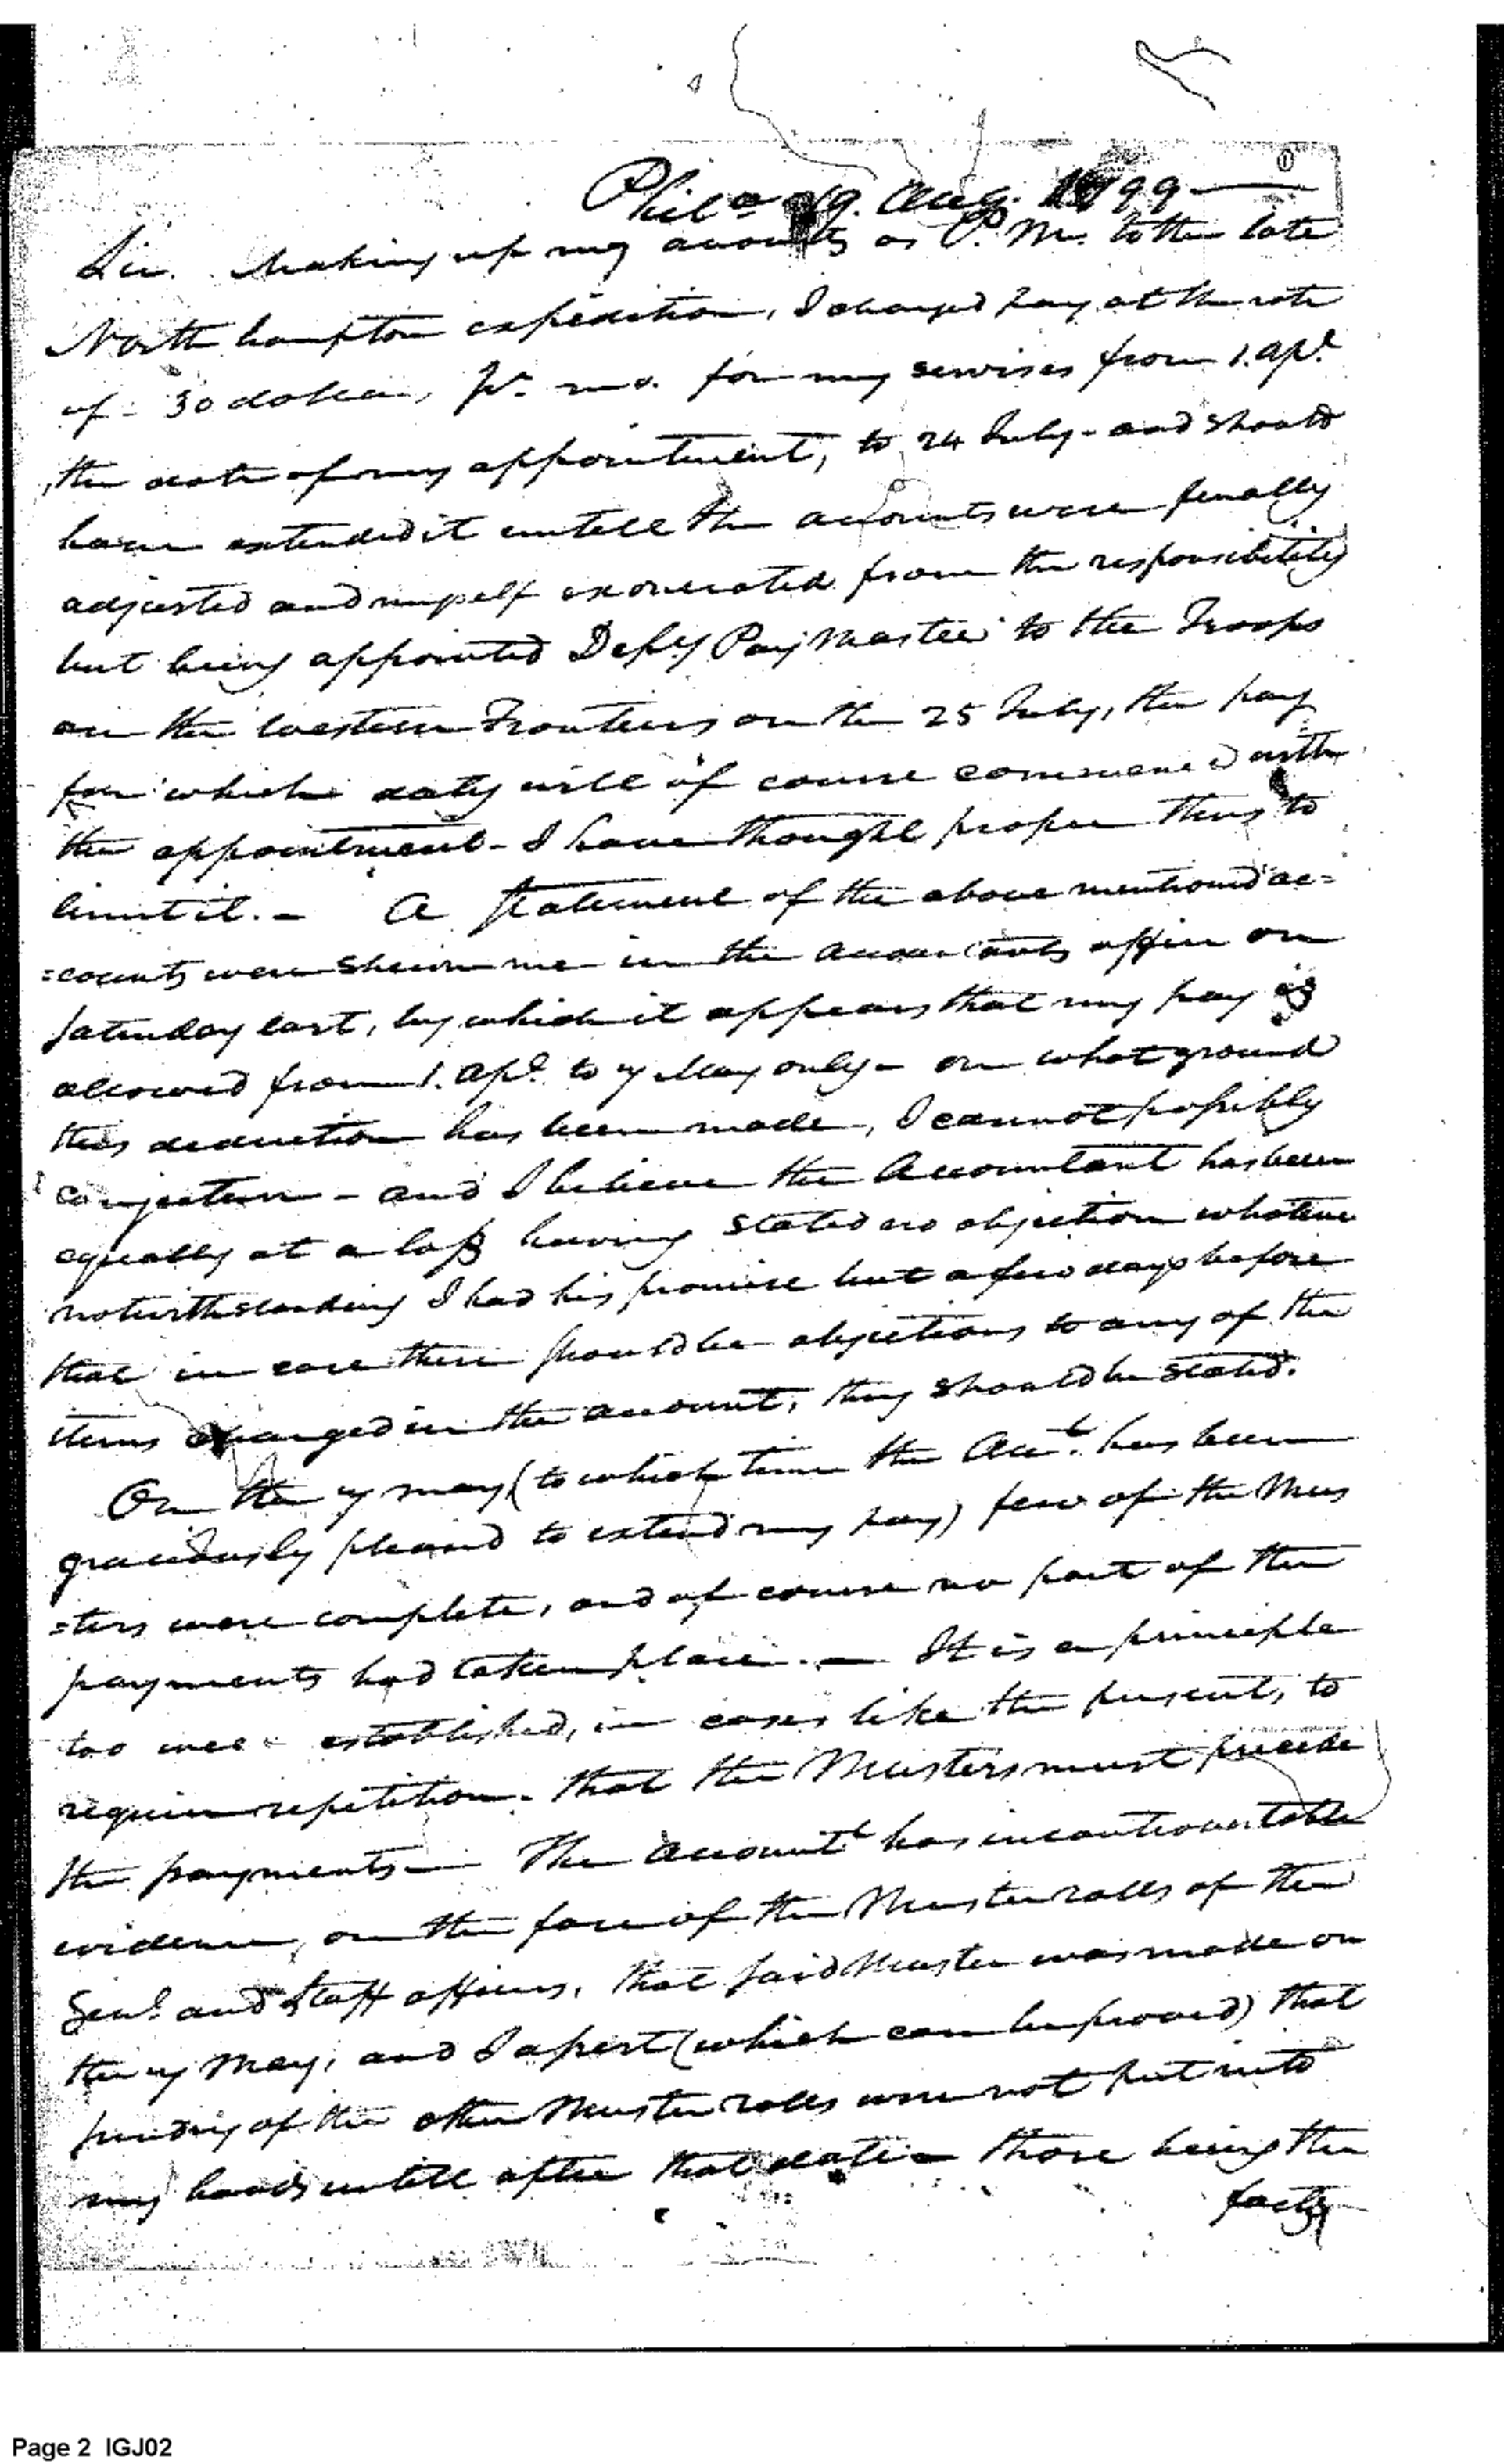 Phila 19. Aug. 1799
Sir. Making up my accounts as P. M. to the late
Northhampton expedition, I charged pay at the rate
of 30 dollars, pr. mo. for my servises from 1. Apl.
the date of my appointment, to 24 July - and should
have extended it untill the accounts were finally
adjusted and myself exonerated from the responsibility
but being appointed Depy Pay Master to the Troops
on the Western Frontiers on the 25 July, the pay
for which duty will of course commence with
the appointment - I have thought proper thus to
limit it. - A statement of the above mentioned ac=
=counts were shewn me in the Accountants office on
saturday last, by which it appears that my pay is
allowed from 1. Apl. to 7 May only - on what ground
this deduction has been made, I cannot possibly
conjecture - and I believe the Accountant has been
equally at a loss having stated no objection whatever
notwithstanding I had his promise but a few days before
that in case there should be objections to any of the
items charged in the account, they should be stated.
On the 7 may (to which time the Acct. has been
graciously pleased to extend my pay) few of the Mus
=ters were complete, and of course no part of the
payments had taken place. - It is a principle
too well established, in cases like the present, to
require repetition - that the Musters must precede
the payments - The Accountt has incontrovertable
evidence, on the face of the Muster rolls of the
Genl. and Staff officers, that said Muster was made on
the 7 May, and I assert (which can be proved) that
sundry of the other Muster rolls were not put into
my hands untill after that date - those being the
facts
Page 2 IGJ02